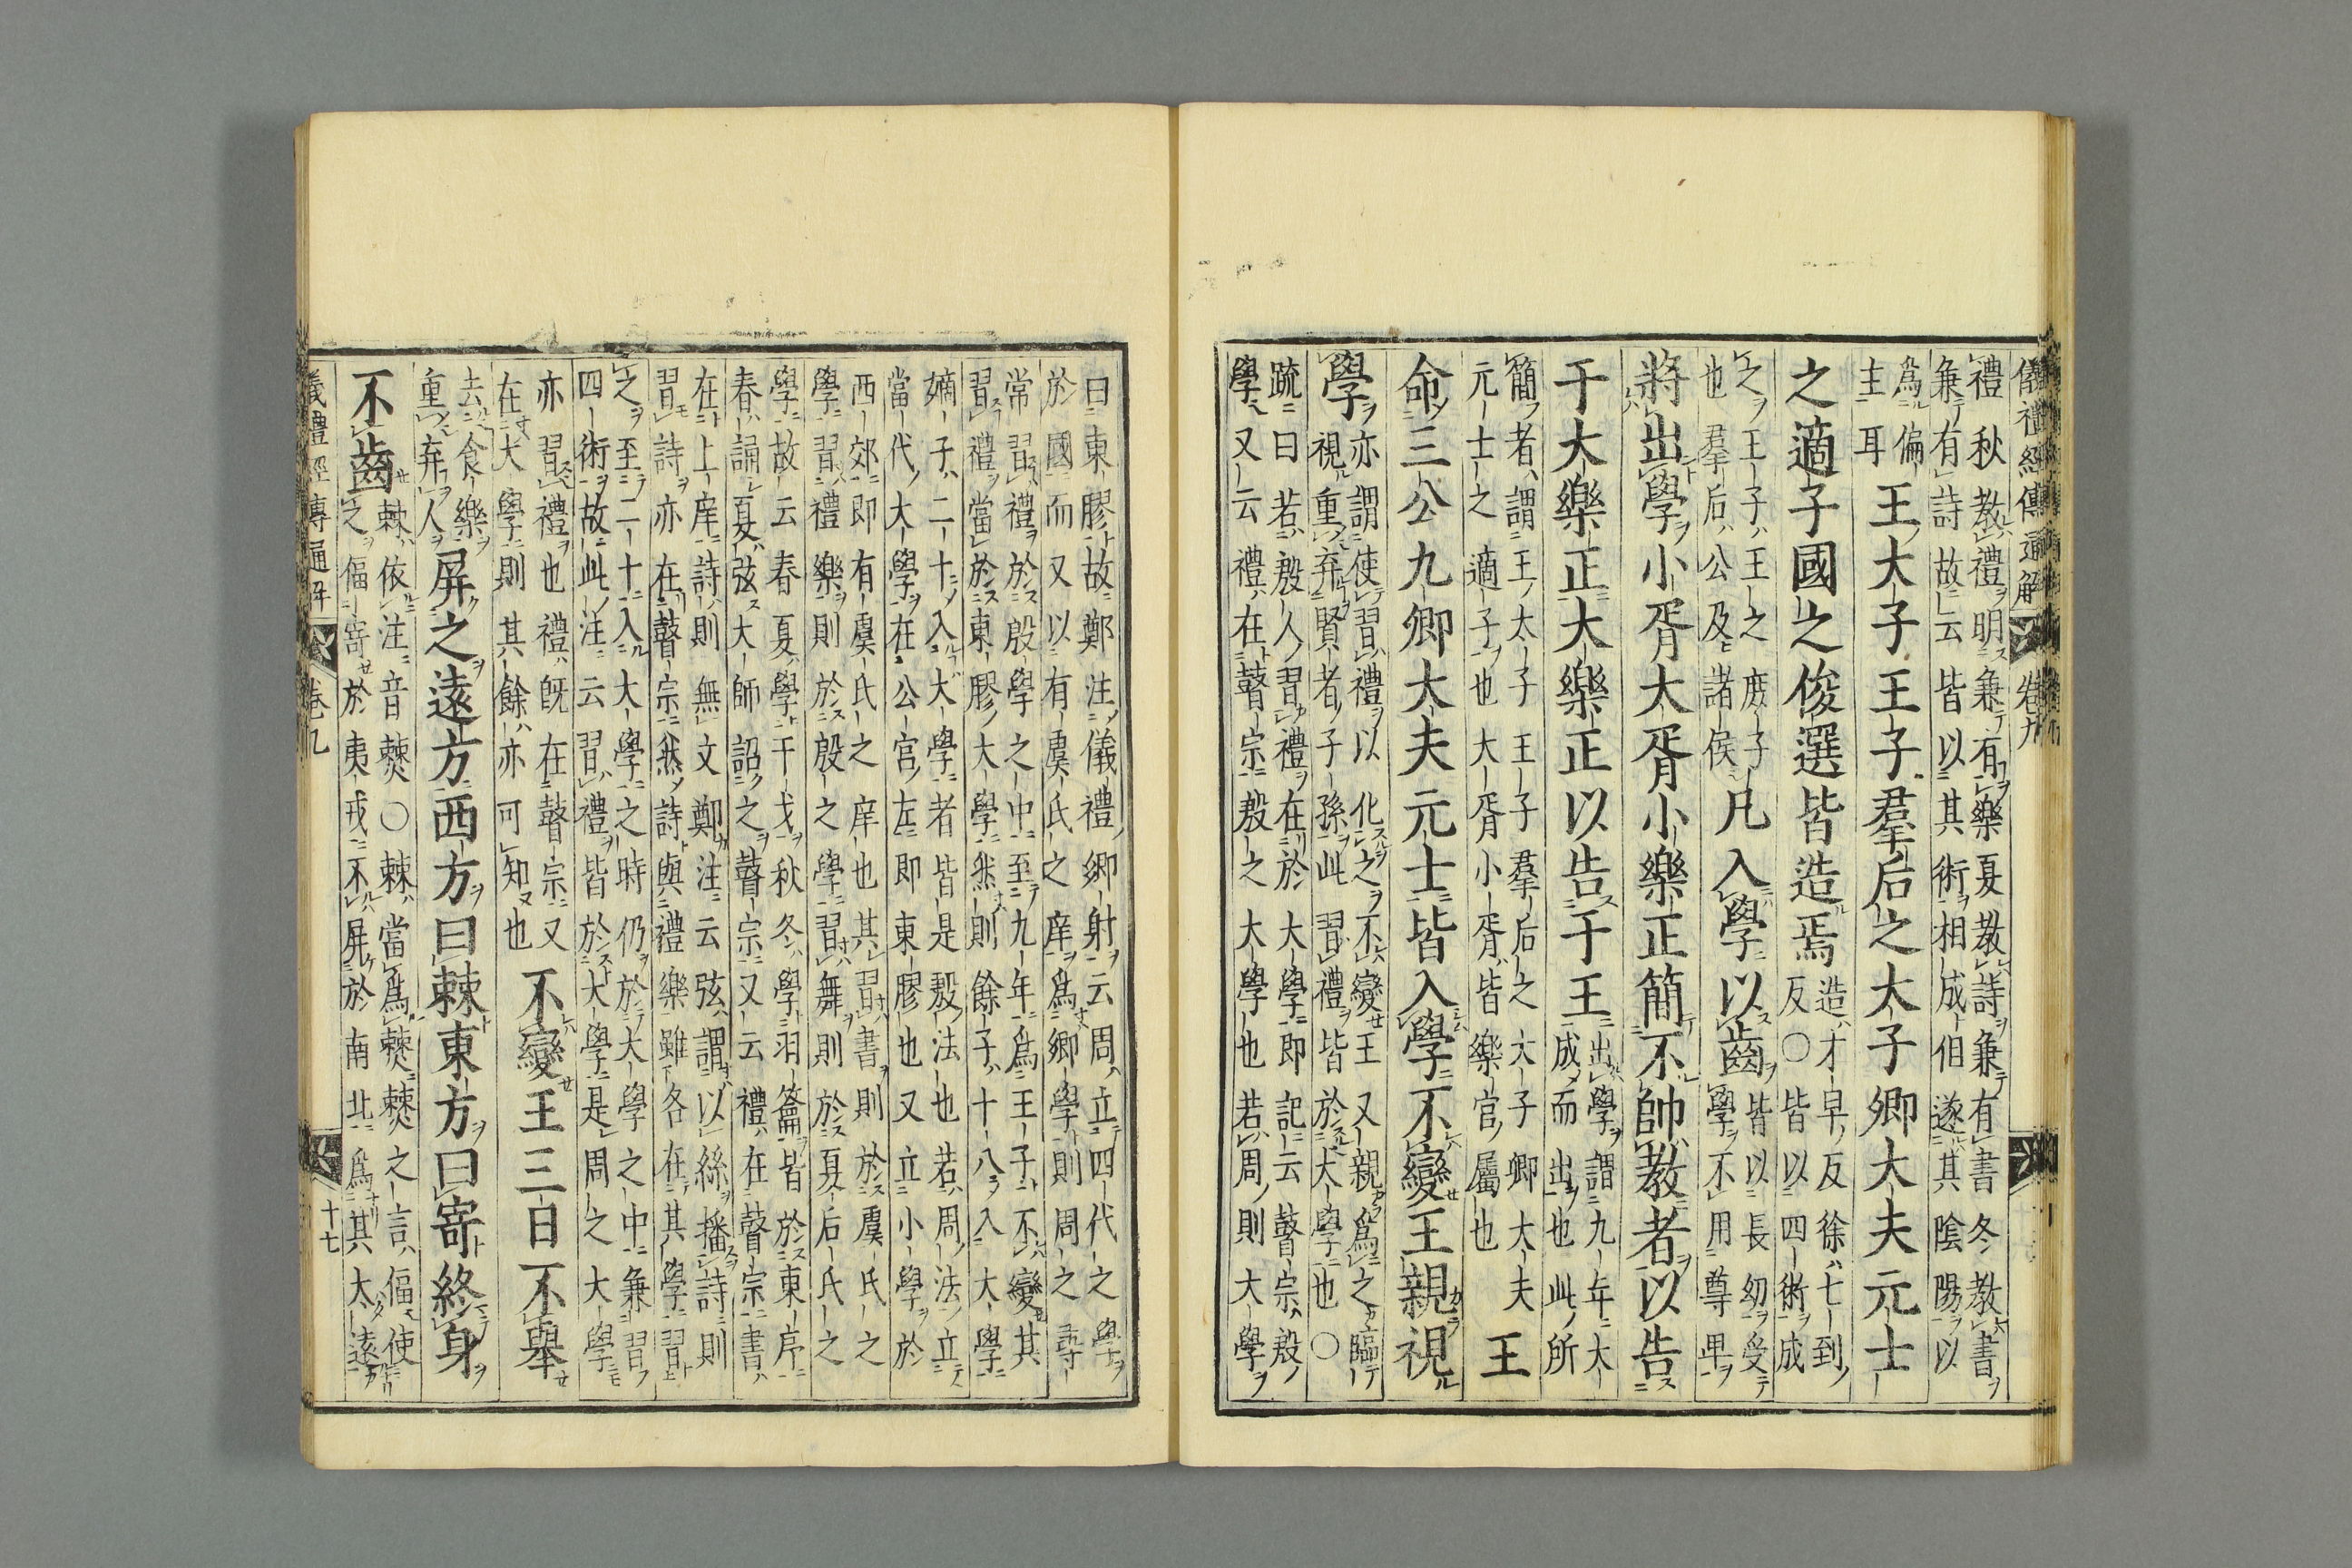 儀禮經傳通解 卷九
禮秋教禮明兼有樂夏教詩兼有書冬教書
兼有詩故云皆以其術相成但遂其陰陽以
爲偏
主耳
王大子王子羣后之太子卿大夫元士
之適子國之俊選皆造焉
造才早反徐七到
反○皆以四術成
之王子王之庶子
也羣后公及諸侯
凡入學以齒
皆以長幼受
學不用尊卑
將出學小胥大胥小樂正簡不帥教者以告
于大樂正大樂正以告于王
出學謂九年大
成而出也此所
簡者謂王太子王子羣后之大子卿大夫
元士之適子也大胥小胥皆樂官屬也
王
命三公九卿大夫元士皆入學不變王親視
學
亦謂使習禮以化之不變王又親爲之臨
視重弃賢者子孫此習禮皆於大學也○
疏曰若殷人習禮在於大學即記云瞽宗殷
學又云禮在瞽宗殷之大學也若周則大學
曰東膠故鄭注儀禮鄉射云周立四代之學
於國而又以有虞氏之庠爲鄉學則周之尋
常習禮於殷學之中至九年爲王子不變其
習禮當於東膠大學然則餘子十八入大學
嫡子二十入大學者皆是殷法也若周法立
當代大學在公宮左即東膠也又立小學於
西郊即有虞氏之庠也其習書則於虞氏之
學習禮樂則於殷之學習舞則於夏后氏之
學故云春夏學干戈秋冬學羽籥皆於東序
春誦夏弦大師詔之瞽宗又云禮在瞽宗書
在上庠詩則無文鄭注云弦謂以絲播詩則
習詩亦在瞽宗然詩與禮樂雖各在其學習
之至二十入大學之時仍於大學之中兼習
四術故此注云習禮皆於大學是周之大學
亦習禮也禮既在瞽宗又
在大學則其餘亦可知也
不變王三日不舉
去食樂
重弃人
屏之遠方西方曰棘東方曰寄終身
不齒
棘依注音僰○棘當爲僰僰之言偪使
之偪寄於夷戎不屏於南北爲其太遠
儀禮經傳通解 卷九 十七